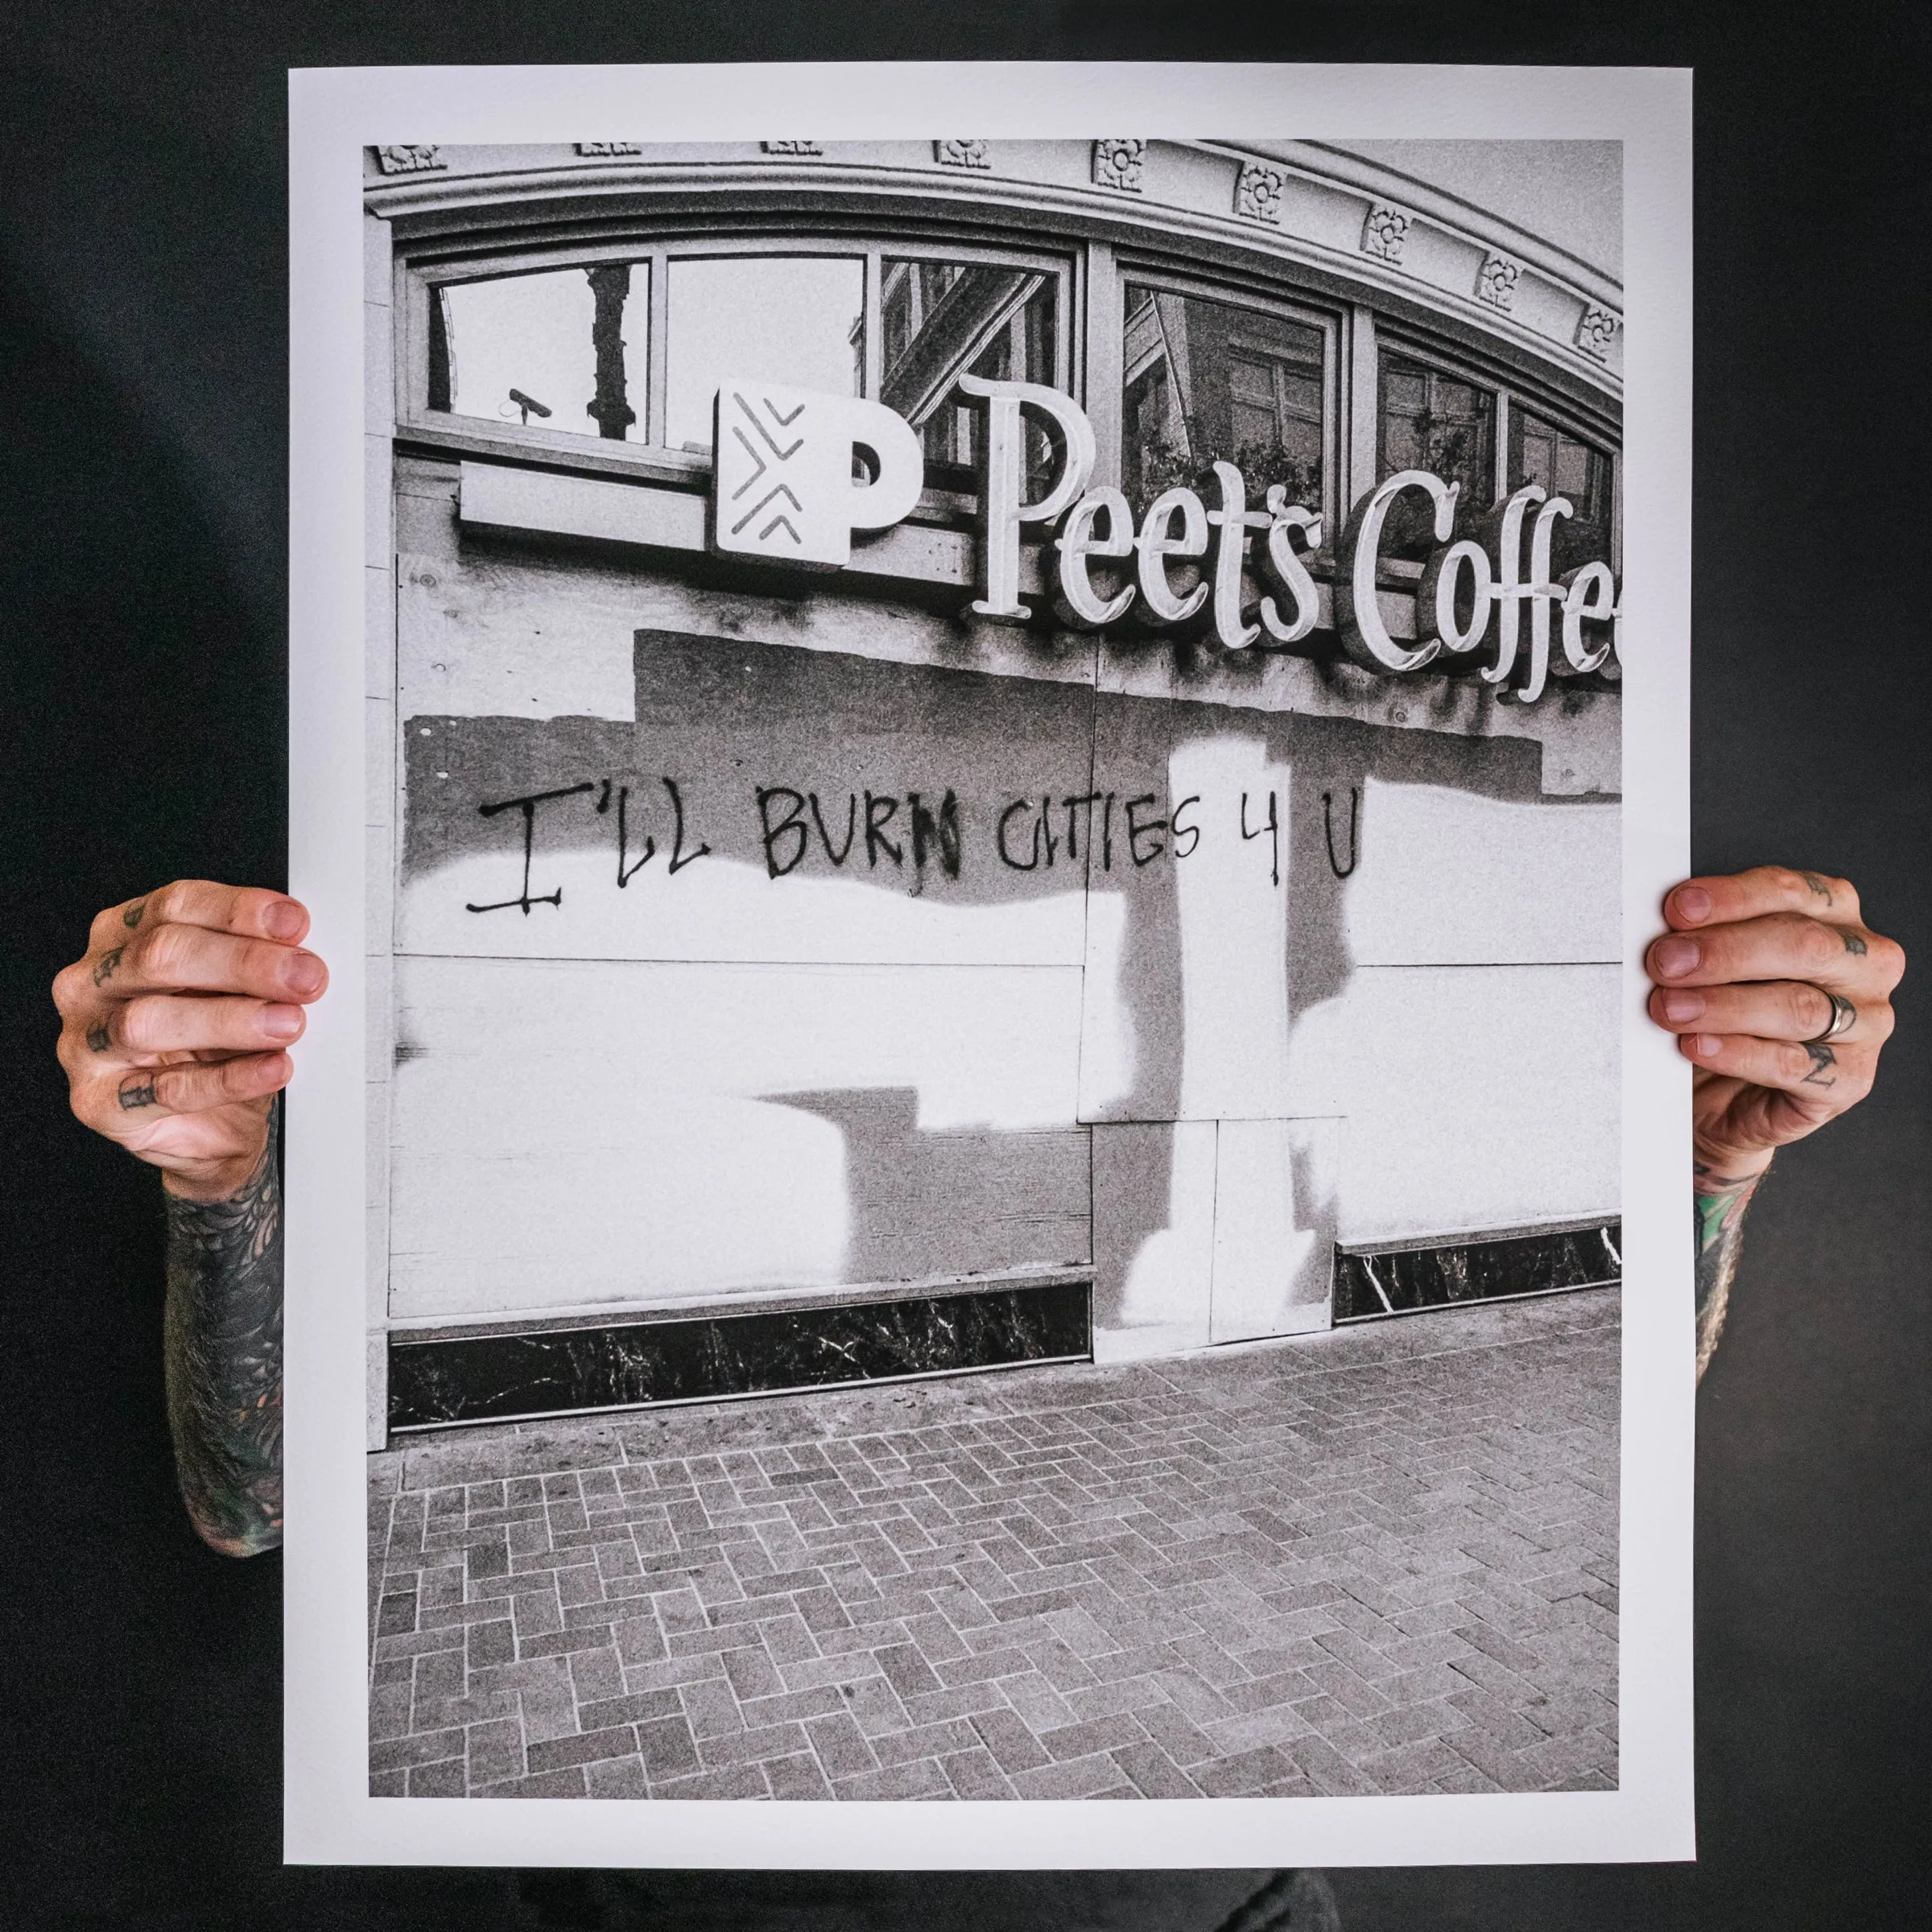 Peet's Coffee
I'LL BURN CITIES 4 U